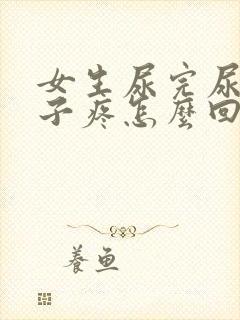 女生尿完尿
子疼怎麼回
養魚